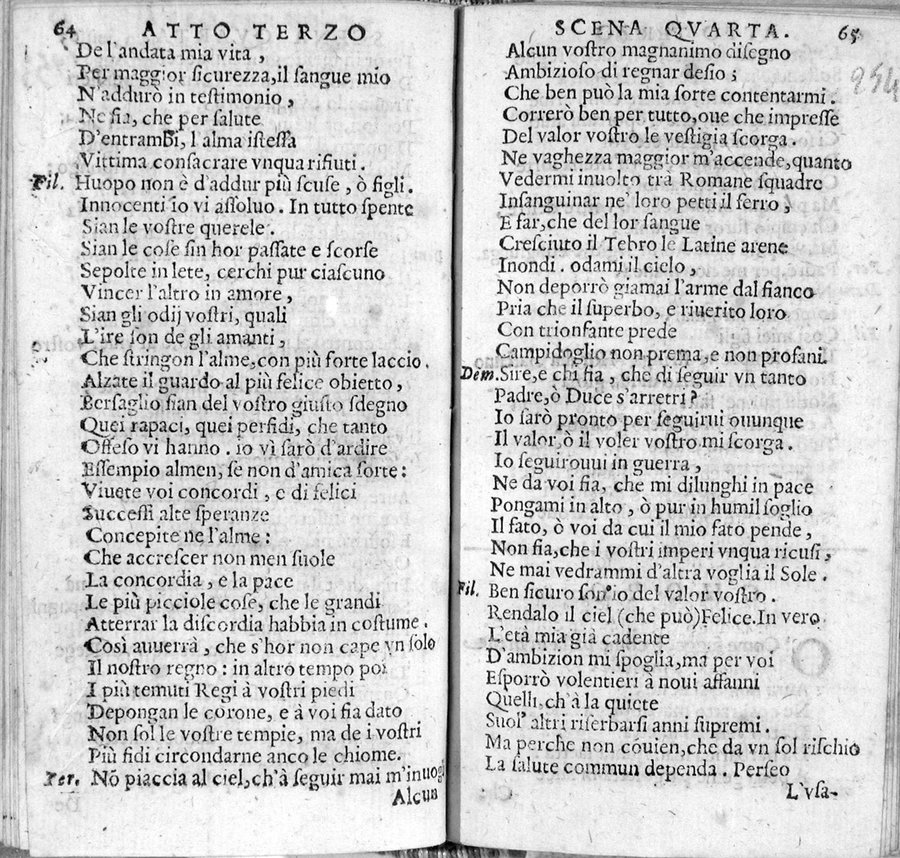 64 ATTO TERZO
De l'andata mia vita,
Per maggior ſicurezza, il ſangue mio
N'addurò in teſtimonio,
Ne ſia, che per ſalute
D'entrambi, l'alma iſteſſa
Vittima conſacrare vnqua rifiuti.
Fil. Huopo non è d'addur più ſcuſe, ò figli.
Innocenti io vi aſſoluo. In tutto ſpente
Sian le voſtre querele.
Sian le coſe ſin hor paſſate e ſcorſe
Sepolte in lete, cerchi pur ciaſcuno
Vincer l'altro in amore,
Sian gli odij voſtri, quali
L'ire ſon de gli amanti,
Che ſtringon l'alme, con più forte laccio.
Alzate il guardo al più felice obietto,
Berſaglio ſian del voſtro giuſto ſdegno
Quei rapaci, quei perfidi, che tanto
Offeſo vi hanno. io vi ſarò d'ardire
Eſſempio almen, ſe non d'amica ſorte:
Viuete voi concordi, e di felici
Succeſſi alte ſperanze
Concepite ne l'alme:
Che accreſcer non men ſuole
La concordia, e la pace
Le più picciole coſe, che le grandi
Atterrar la diſcordia habbia in coſtume.
Così auuerrà, che s'hor non cape vn ſolo
Il noſtro regno: in altro tempo poi
I più temuti Regi à voſtri piedi
Depongan le corone, e à voi ſia dato
Non ſol le voſtre tempie, ma de i voſtri
Più fidi circondarne anco le chiome.
Per. Nõ piaccia al ciel, ch'à ſeguir mai m'inuogli
Alcun
SCENA QVARTA. 65
954
Alcun voſtro magnanimo diſegno
Ambizioſo di regnar deſio;
Che ben può la mia ſorte contentarmi.
Correrò ben per tutto, oue che impreſſe
Del valor voſtro le veſtigia ſcorga.
Ne vaghezza maggior m'accende, quanto
Vedermi inuolto trà Romane ſquadre
Inſanguinar ne' loro petti il ferro,
E far, che del lor ſangue
Creſciuto il Tebro le Latine arene
Inondi. odami il cielo,
Non deporrò giamai l'arme dal fianco
Pria che il ſuperbo, e riuerito loro
Con trionfante prede
Campidoglio non prema, e non profani.
Dem. Sire, e chi fia, che di ſeguir vn tanto
Padre, ò Duce s'arretri?
Io ſarò pronto per ſeguirui ouunque
Il valor, ò il voler voſtro mi ſcorga.
Io ſeguirouui in guerra,
Ne da voi fia, che mi dilunghi in pace
Pongami in alto, ò pur in humil ſoglio
Il fato, ò voi da cui il mio fato pende,
Non fia, che i voſtri imperi vnqua ricuſi,
Ne mai vedrammi d'altra voglia il Sole.
Fil. Ben ſicuro ſon'io del valor voſtro.
Rendalo il ciel (che può) Felice. In vero
L'età mia già cadente
D'ambizion mi ſpoglia, ma per voi
Eſporrò volentieri à noui affanni
Quelli, ch'à la quiete
Suol' altri riſerbarſi anni ſupremi.
Ma perche non couien, che da vn ſol riſchio
La ſalute commun dependa. Perſeo
L'vſa-